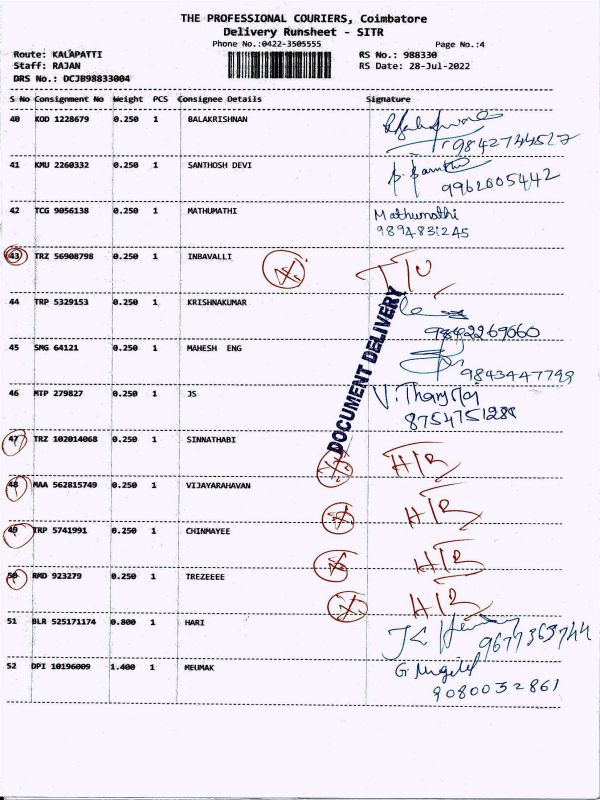 THE PROFESSIONAL COURIERS, Coimbatore
Delivery Runsheet - SITR
Phone No.:0422-3505555 Page No.:4
Route: KALAPATTI RS No.: 988330
Staff: RAJAN RS Date: 28-Jul-2022
DRS No.: DCJB98833004
S No Consignment No Weight PCS Consignee Details Signature
40 KOD 1228679 0.250 1 BALAKRISHNAN
9842744527
41 KMU 2260332 0.250 1 SANTHOSH DEVI
9962005442
42 TCG 9056138 0.250 1 MATHUMATHI Mathumathi
9894831245
43 TRZ 56908798 0.250 1 INBAVALLI
44 TRP 5329153 0.250 1 KRISHNAKUMAR
9842269060
45 SMG 64121 0.250 1 MAHESH ENG
9843447799
46 MTP 279827 0.250 1 JS
DOCUMENT DELIVERY
47 TRZ 102014068 0.250 1 SINNATHABI
48 MAA 562815749 0.250 1 VIJAYARAHAVAN
49 TRP 5741991 0.250 1 CHINMAYEE
50 RMD 923279 0.250 1 TREZEEEE
51 BLR 525171174 0.800 1 HARI
9677363744
52 DPI 10196009 1.400 1 MEUMAK
9080032861